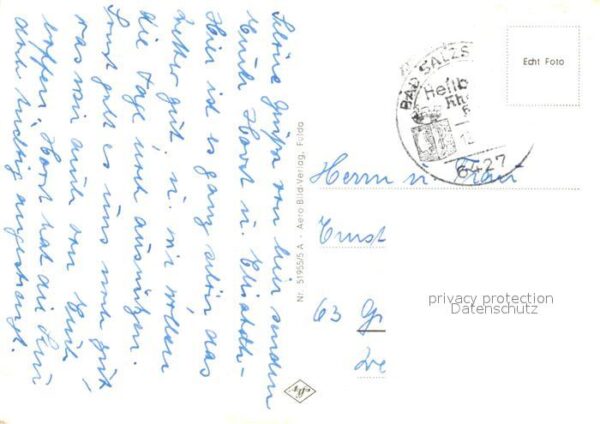 Schöne Grüße von hier senden
Euch Horst u. Elisabeth
Hier ist es ganz schön das
Wetter gut, u. wir wollen
die Tage noch ausnützen.
Sonst geht es uns noch gut,
was wir auch von Euch
hoffen, Horst hat die Kur
arg angestrengt.
Nr. 51955/5 A - Aero Bild-Verlag, Fulda
BAD SALZS
Heilb
Rh
6427
Echt Foto
Herrn u. Frau
Ernst
63 G
privacy protection
Datenschutz